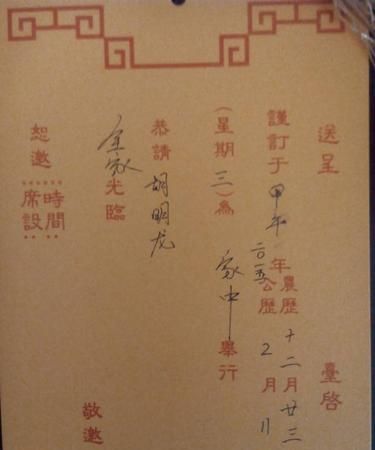 送呈 臺啓
謹訂于甲午年 農歷十二月廿三
二〇一五 公歷2月11
(星期三)為 家中 舉行
恭請 胡明龙
全家光臨
時間
席設
恕邀 敬邀